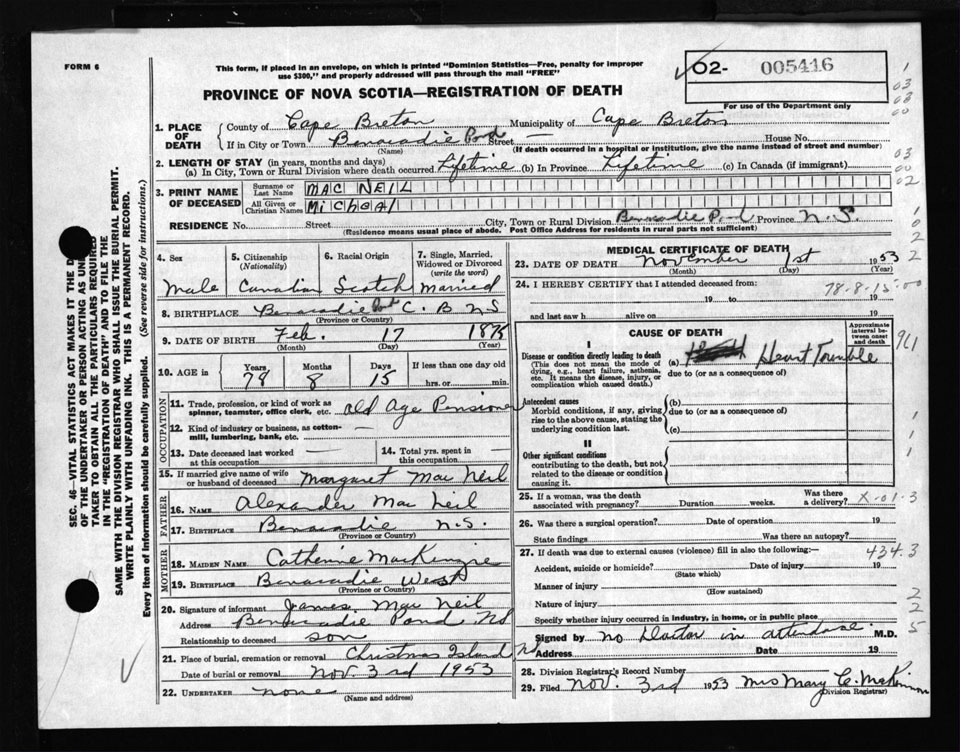 FORM 6
This form, if placed in an envelope, on which is printed "Dominion Statistics—Free, penalty for improper
use $300," and properly addressed will pass through the mail "FREE"
PROVINCE OF NOVA SCOTIA—REGISTRATION OF DEATH
✓ 02- 005416
For use of the Department only
1. PLACE OF DEATH
County of Cape Breton Municipality of Cape Breton
If in City or Town Benacadie Pond Street — House No.
(Name) (If death occurred in a hospital or institution, give the name instead of street and number)
2. LENGTH OF STAY (in years, months and days)
(a) In City, Town or Rural Division where death occurred Lifetime (b) In Province Lifetime (c) In Canada (if immigrant)
3. PRINT NAME OF DECEASED
Surname or Last Name MAC NEIL
All Given or Christian Names MicheAl
RESIDENCE No. Street City, Town or Rural Division Benacadie Pond Province N.S.
(Residence means usual place of abode. Post Office Address for residents in rural parts not sufficient)
4. Sex Male
5. Citizenship (Nationality) Canadian
6. Racial Origin Scotch
7. Single, Married, Widowed or Divorced (write the word) Married
8. BIRTHPLACE Benacadie Pond C. B N S
(Province or Country)
9. DATE OF BIRTH Feb. 17 1875
(Month) (Day) (Year)
10. AGE in Years 78 Months 8 Days 15 If less than one day old hrs. or min.
OCCUPATION
11. Trade, profession, or kind of work as spinner, teamster, office clerk, etc. Old Age Pensioner
12. Kind of industry or business, as cotton-mill, lumbering, bank, etc. —
13. Date deceased last worked at this occupation —
14. Total yrs. spent in this occupation —
15. If married give name of wife or husband of deceased Margaret Mac Neil
FATHER
16. NAME Alexander Mac Neil
17. BIRTHPLACE Benacadie N.S.
(Province or Country)
MOTHER
18. MAIDEN NAME Catherine MacKenzie
19. BIRTHPLACE Benacadie West
(Province or Country)
20. Signature of informant James Mac Neil
Address Benacadie Pond, NS
Relationship to deceased son
21. Place of burial, cremation or removal Christmas Island NS
Date of burial or removal Nov. 3rd 1953
22. UNDERTAKER none
(Name and address)
MEDICAL CERTIFICATE OF DEATH
23. DATE OF DEATH November 1st 1953
(Month) (Day) (Year)
24. I HEREBY CERTIFY that I attended deceased from:
78-8-15-00
19 to 19
and last saw h alive on 19
CAUSE OF DEATH
Approximate interval between onset and death
I
Disease or condition directly leading to death
(This does not mean the mode of dying, e.g., heart failure, asthenia, etc. It means the disease, injury, or complication which caused death.)
(a) Heart Trouble
due to (or as a consequence of)
Antecedent causes
Morbid conditions, if any, giving rise to the above cause, stating the underlying condition last.
(b)
due to (or as a consequence of)
(c)
II
Other significant conditions
contributing to the death, but not related to the disease or condition causing it.
25. If a woman, was the death associated with pregnancy? Duration weeks. Was there a delivery? X-01-3
26. Was there a surgical operation? Date of operation 19
State findings Was there an autopsy?
27. If death was due to external causes (violence) fill in also the following:— 434.3
Accident, suicide or homicide? Date of injury 19
(State which)
Manner of injury
(How sustained)
Nature of injury
Specify whether injury occurred in industry, in home, or in public place
Signed by no Doctor in attendance M.D.
Address Date 19
28. Division Registrar's Record Number
29. Filed Nov. 3rd 1953 Mrs Mary C. McKinnon
(Division Registrar)
SEC. 46 VITAL STATISTICS ACT MAKES IT THE
OF THE UNDERTAKER OR PERSON ACTING AS
TAKER TO OBTAIN ALL THE PARTICULARS REQUIRED
IN THE "REGISTRATION OF DEATH" AND TO FILE THE
SAME WITH THE DIVISION REGISTRAR WHO SHALL ISSUE THE BURIAL PERMIT.
WRITE PLAINLY WITH UNFADING INK. THIS IS A PERMANENT RECORD.
Every item of information should be carefully supplied. (See reverse side for instructions.)